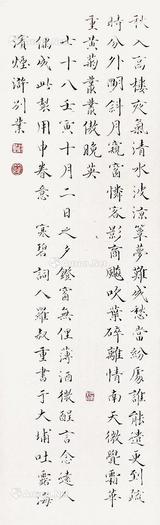 秋入高樓夜氣清水波涼簟夢難成愁當紛處誰能遣更到疏
時分外明斜月寒窗憐客影商飆吹葉碎離情南天微覺霜華
重黃菊叢叢傲晚英
七十八壬寅十月二日之夕鐙窗無俚薄酒微醒言念遠人
偶成此製用申眷意 寒碧詞人羅叔重書于大埔吐露海
濱煙滸別業